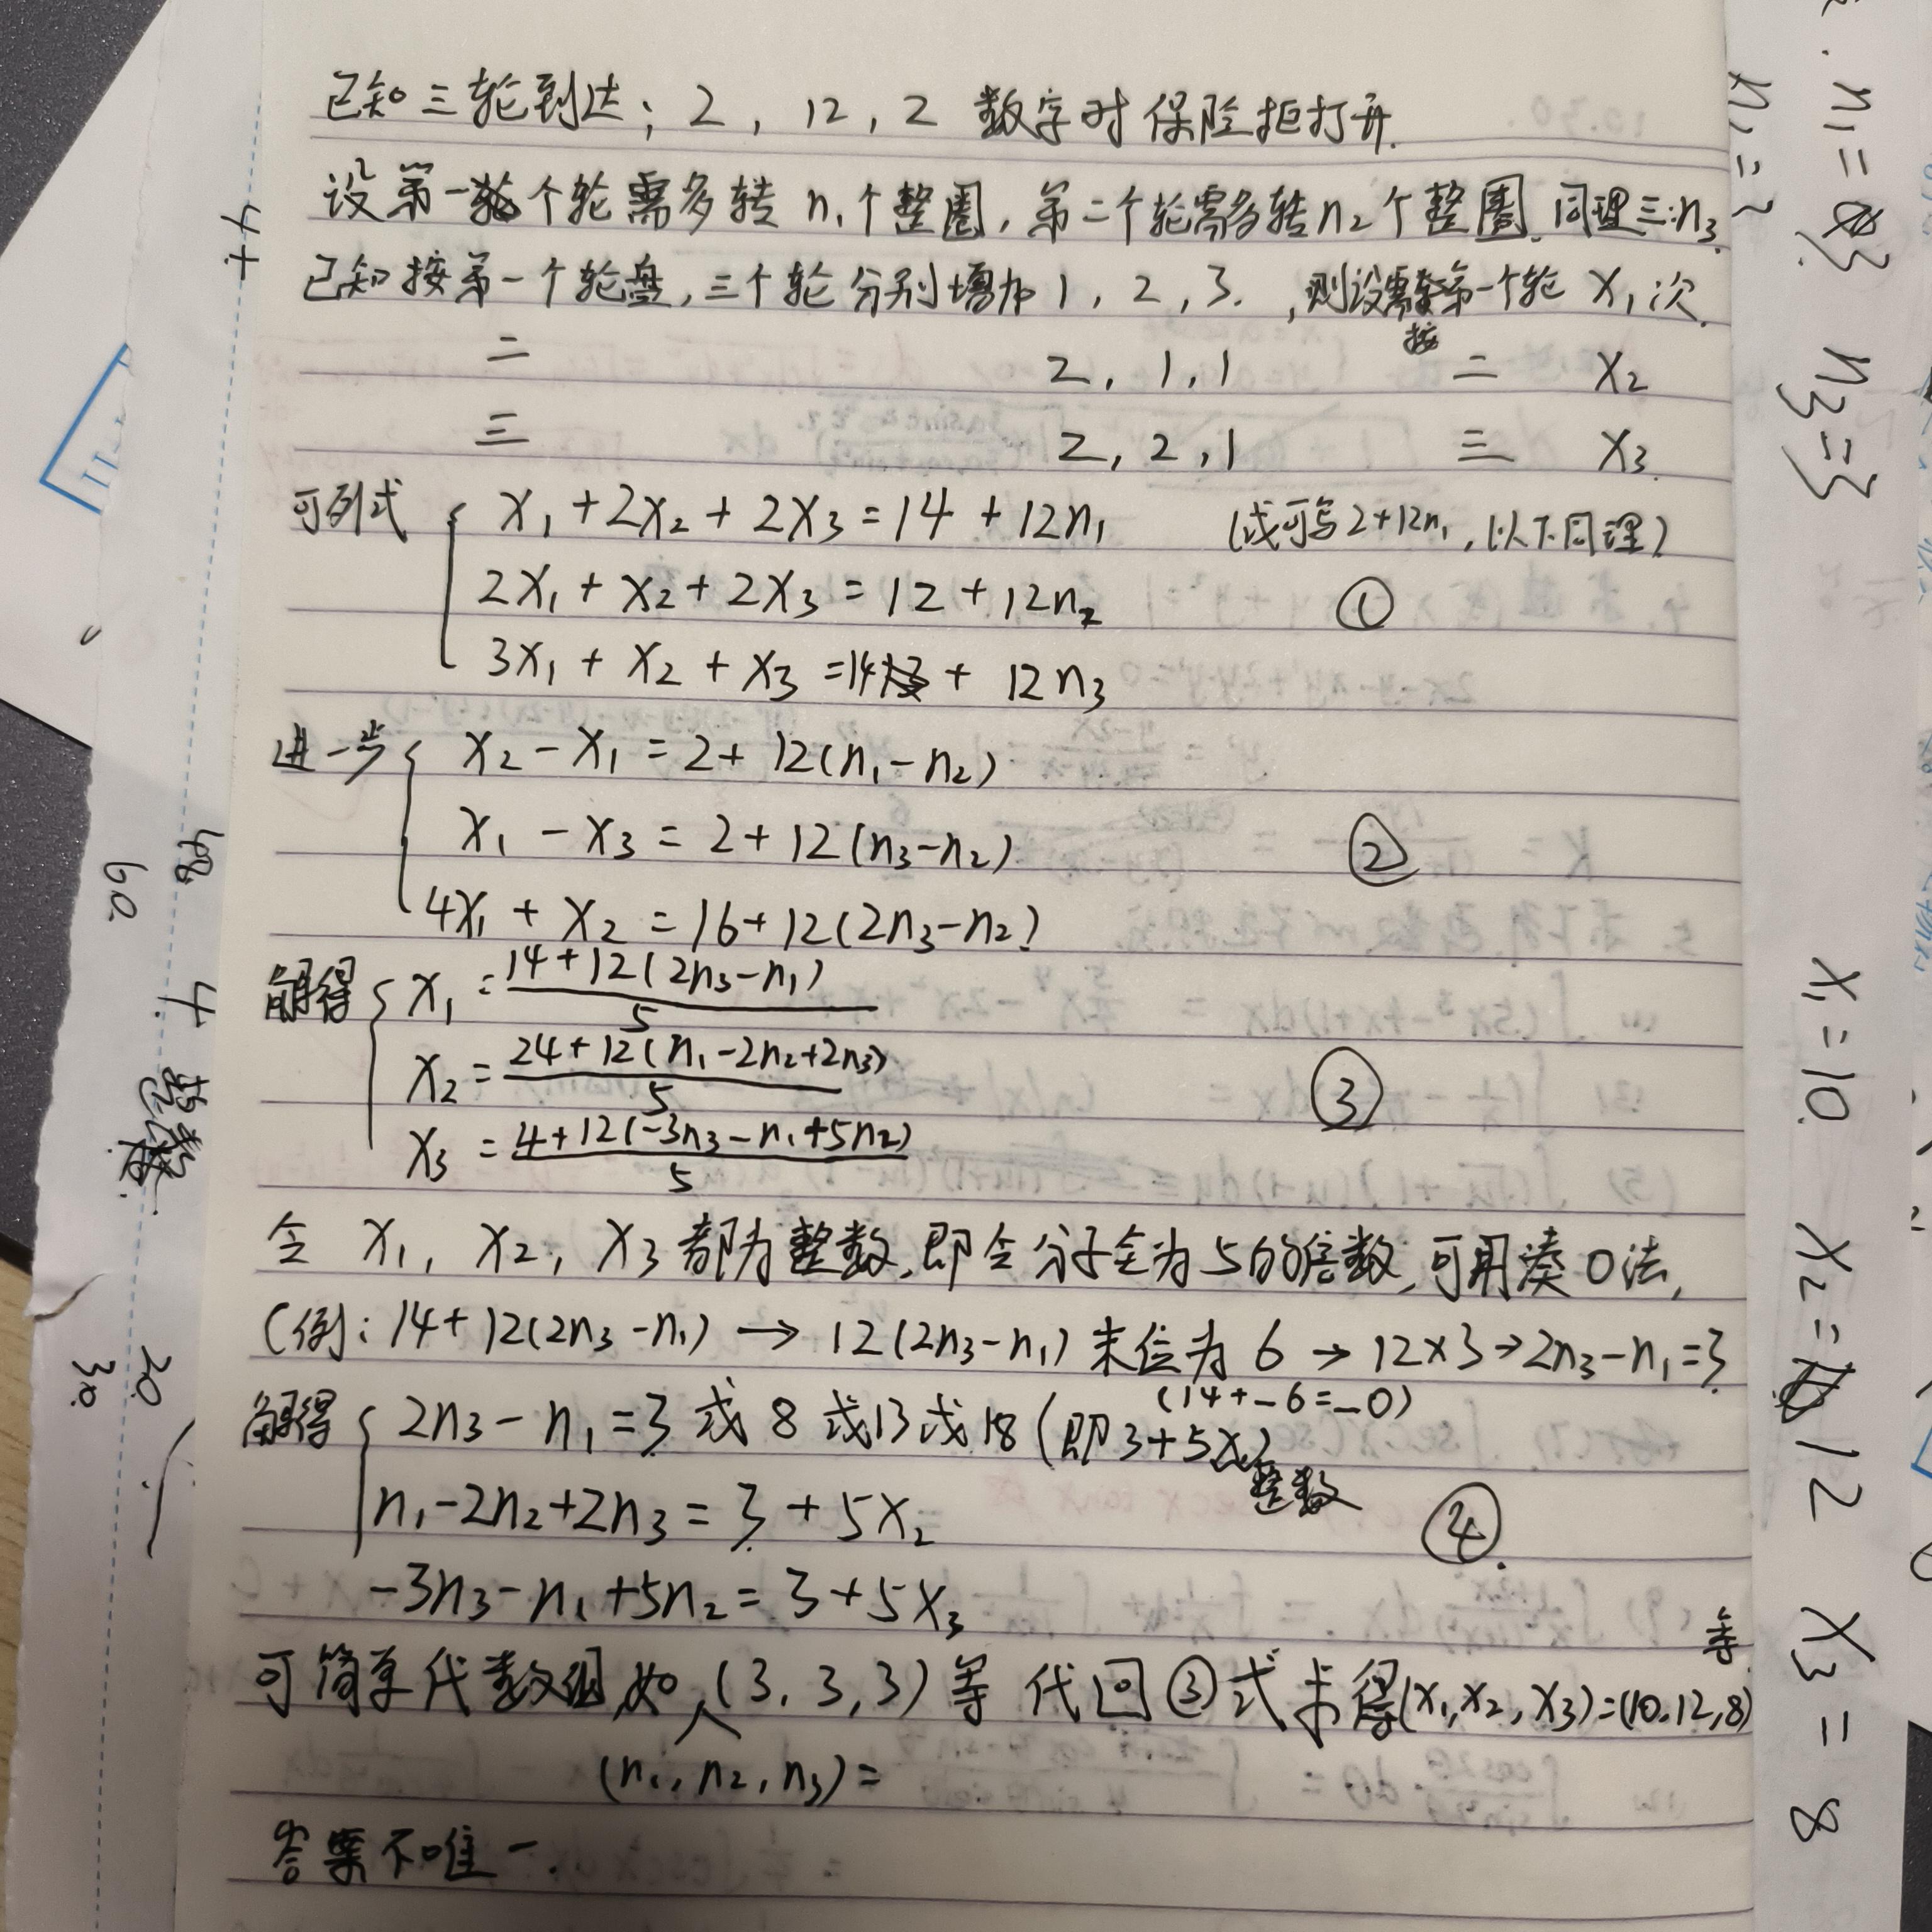 已知三轮到达；2，12，2 数字时保险柜打开.
设第一个轮需多转 n₁个整圈，第二个轮需多转n₂个整圈. 同理三:n₃.
已知按第一个轮盘，三个轮分别增加 1，2，3. ，则设需按第一个轮 X₁次.
二 2，1，1 二 X₂
三 2，2，1 三 X₃.
可列式 { X₁+2X₂+2X₃=14+12n₁ (或可写2+12n₁，以下同理)
2X₁+X₂+2X₃=12+12n₂ ①
3X₁+X₂+X₃=14+12n₃
进一步 { X₂-X₁=2+12(n₁-n₂)
X₁-X₃=2+12(n₃-n₂) ②
4X₁+X₂=16+12(2n₃-n₂)
解得 { X₁=14+12(2n₃-n₁)/5
X₂=24+12(n₁-2n₂+2n₃)/5 ③
X₃=4+12(-3n₃-n₁+5n₂)/5
令 X₁，X₂，X₃都为整数，即令分子全为5的倍数，可用凑0法，
(例：14+12(2n₃-n₁) → 12(2n₃-n₁)末位为6 → 12×3→2n₃-n₁=3
(14+_6=_0)
解得 { 2n₃-n₁=3或8或13或18(即3+5X)
整数
n₁-2n₂+2n₃=3+5X₂ ④.
-3n₃-n₁+5n₂=3+5X₃
可简单代数组如(3，3，3)等 代回③式求得(X₁,X₂,X₃)=(10.12,8)等
(n₁，n₂，n₃)=
答案不唯一.
n₁= n₃=3
n₁=?
X₁=10. X₂=12 X₃=8
4
48
60.
4.
20.
30.